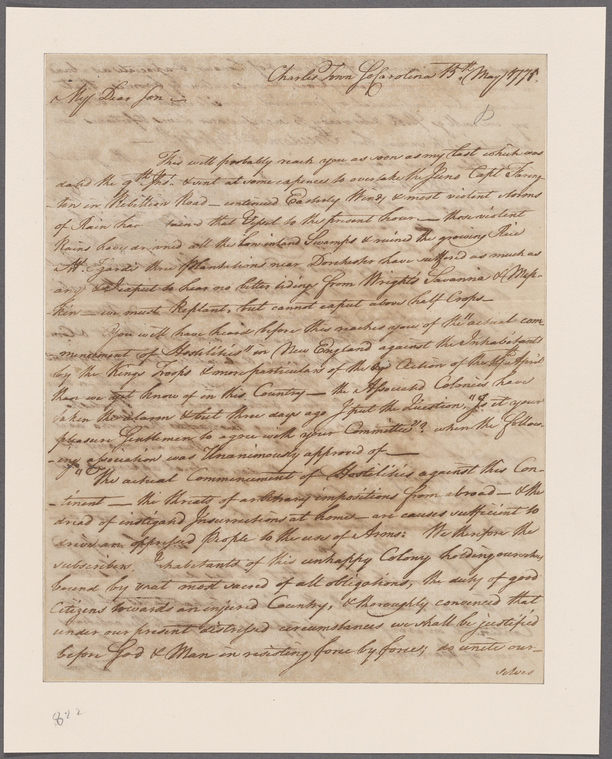 Charles Town So Carolina 15th May 1775.
My Dear Son —
This will probably reach you as soon as my last which was
dated the 9th Inst. & sent at some expences to overtake the Juno Capt Farn-
ton in Rebellion Road — continued Easterly Winds & most violent Storms
of Rain have tained that Vessel to the present hour — those violent
Rains have drowned all the low inland Swamps & ruined the growing Rice
Mr. Izards three Plantations near Dorchester have suffered as much as
any & I expect to hear no better tidings from Wrights Savanna & Mep-
kin — we must Replant, but cannot expect above half Crops —
You will have heard before this reaches you of the "actual com
mencement of Hostilities" in New England against the Inhabitants
by the Kings Troops & more particulars of the Action of the April
than we yet know of in this Country — the Associated Colonies have
taken the alarm & but three days ago I put the Question, "Is it your
pleasure Gentlemen to agree with your Committee"? when the follow-
-ing association was Unanimously approved of —
"The actual Commencement of Hostilities against this Con-
-tinent — the threats of arbitrary impositions from abroad — & the
dread of instigated Insurrections at home — are causes sufficient to
drive an oppressed People to the use of Arms: We therefore the
subscribers Inhabitants of this unhappy Colony holding ourselves
bound by that most sacred of all obligations, the duty of good
Citizens towards an injured Country, & thoroughly convinced that
under our present distressed circumstances we shall be justified
before God & Man in resisting force by force; do unite our-
selves
842